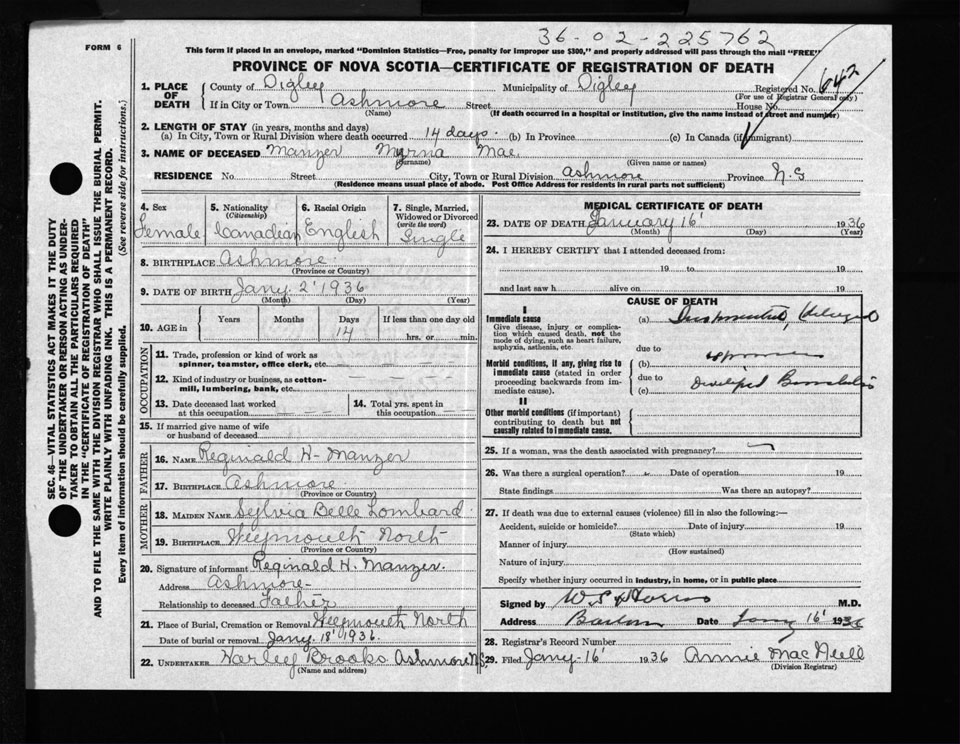 36-02-225762
FORM 6
This form if placed in an envelope, marked "Dominion Statistics—Free, penalty for improper use $300," and properly addressed will pass through the mail "FREE"
PROVINCE OF NOVA SCOTIA—CERTIFICATE OF REGISTRATION OF DEATH
1. PLACE OF DEATH County of Digby Municipality of Digby Registered No. 642
(For use of Registrar General only)
If in City or Town Ashmore Street House No.
(Name) (If death occurred in a hospital or institution, give the name instead of street and number)
2. LENGTH OF STAY (in years, months and days)
(a) In City, Town or Rural Division where death occurred 14 days. (b) In Province (c) In Canada (if immigrant)
3. NAME OF DECEASED Manzer Myrna Mae
(Surname) (Given name or names)
RESIDENCE No. Street City, Town or Rural Division Ashmore Province N.S
(Residence means usual place of abode. Post Office Address for residents in rural parts not sufficient)
4. Sex Female
5. Nationality (Citizenship) Canadian
6. Racial Origin English
7. Single, Married, Widowed or Divorced (write the word) Single
8. BIRTHPLACE Ashmore
(Province or Country)
9. DATE OF BIRTH Jany. 2' 1936
(Month) (Day) (Year)
10. AGE in Years Months Days 14 If less than one day old hrs. or min.
OCCUPATION
11. Trade, profession or kind of work as spinner, teamster, office clerk, etc.
12. Kind of industry or business, as cotton-mill, lumbering, bank, etc.
13. Date deceased last worked at this occupation
14. Total yrs. spent in this occupation
15. If married give name of wife or husband of deceased
FATHER
16. NAME Reginald H. Manzer
17. BIRTHPLACE Ashmore
(Province or Country)
MOTHER
18. MAIDEN NAME Sylvia Belle Lombard
19. BIRTHPLACE Weymouth North
(Province or Country)
20. Signature of informant Reginald H. Manzer.
Address Ashmore-
Relationship to deceased Father
21. Place of Burial, Cremation or Removal Weymouth North
Date of burial or removal Jany. 18' 1936.
22. UNDERTAKER Harley Brooks Ashmore N.S.
(Name and address)
MEDICAL CERTIFICATE OF DEATH
23. DATE OF DEATH January 16' 1936
(Month) (Day) (Year)
24. I HEREBY CERTIFY that I attended deceased from:
19 to 19
and last saw h alive on 19
CAUSE OF DEATH
I
Immediate cause (a)
Give disease, injury or complication which caused death, not the mode of dying, such as heart failure, asphyxia, asthenia, etc.
due to
Morbid conditions, if any, giving rise to immediate cause (stated in order proceeding backwards from immediate cause). (b)
due to
(c) Developed
II
Other morbid conditions (if important) contributing to death but not causally related to immediate cause.
25. If a woman, was the death associated with pregnancy?
26. Was there a surgical operation? Date of operation 19
State findings Was there an autopsy?
27. If death was due to external causes (violence) fill in also the following:—
Accident, suicide or homicide? Date of injury 19
(State which)
Manner of injury
(How sustained)
Nature of injury
Specify whether injury occurred in industry, in home, or in public place
Signed by M.D.
Address Barton Date Jany 16' 1936
28. Registrar's Record Number
29. Filed Jany-16' 1936 Annie MacNeill
(Division Registrar)
SEC. 46—VITAL STATISTICS ACT MAKES IT THE DUTY
OF THE UNDERTAKER OR PERSON ACTING AS UNDER-
TAKER TO OBTAIN ALL THE PARTICULARS REQUIRED
IN THE "CERTIFICATE OF REGISTRATION OF DEATH"
AND TO FILE THE SAME WITH THE DIVISION REGISTRAR WHO SHALL ISSUE THE BURIAL PERMIT.
WRITE PLAINLY WITH UNFADING INK. THIS IS A PERMANENT RECORD.
Every item of information should be carefully supplied. (See reverse side for instructions.)